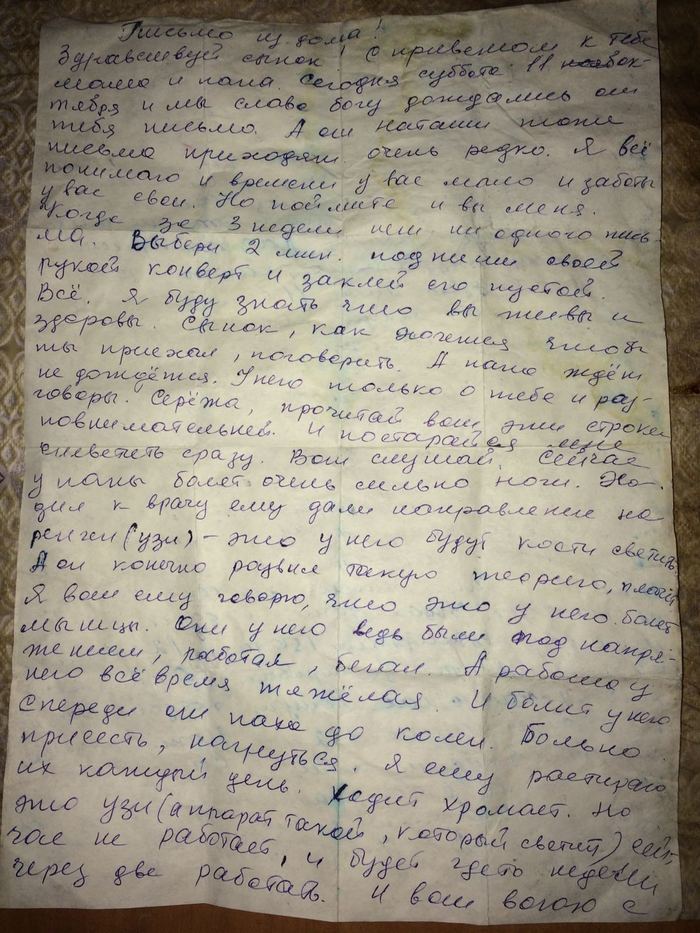 Письмо из дома!
Здравствуй сынок! С приветом к тебе
мама и папа. Сегодня суббота 11 нояб ок-
тября и мы слава богу дождались от
тебя письмо. А от Наташи тоже
письма приходят очень редко. Я всё
понимаю и времени у вас мало и заботы
у вас свои. Но поймите и вы меня.
Когда за 3 недели нет ни одного пись-
ма. Выбери 2 мин. подпиши своей
рукой конверт и заклей его пустой.
Всё. Я буду знать что вы живы и
здоровы. Сынок, как хочется чтоб
ты приехал, поговорить. А папа ждёт
не дождётся. У него только о тебе и раз-
говоры. Серёжа, прочитай вот эти строки
повнимательней. И постарайся мне
ответить сразу. Вот слушай. Сейчас
у папы болят очень сильно ноги. Хо-
дил к врачу ему дали направление на
ренген (узи) – это у него будут кости светить.
А он конечно развил такую теорию,
Я вот ему говорю, что это у него болят
мышцы. Они у него ведь были под напря-
жением, работал, бегал. А работа у
него всё время тяжёлая. И болит у него
спереди от паха до колен. Больно
присесть, нагнуться. Я ему растираю
их каждый день. Ходит хромает. Но
это узи (аппарат такой, который светит) сей-
час не работает, и будет где то недели
через две работать. И вот вогою с